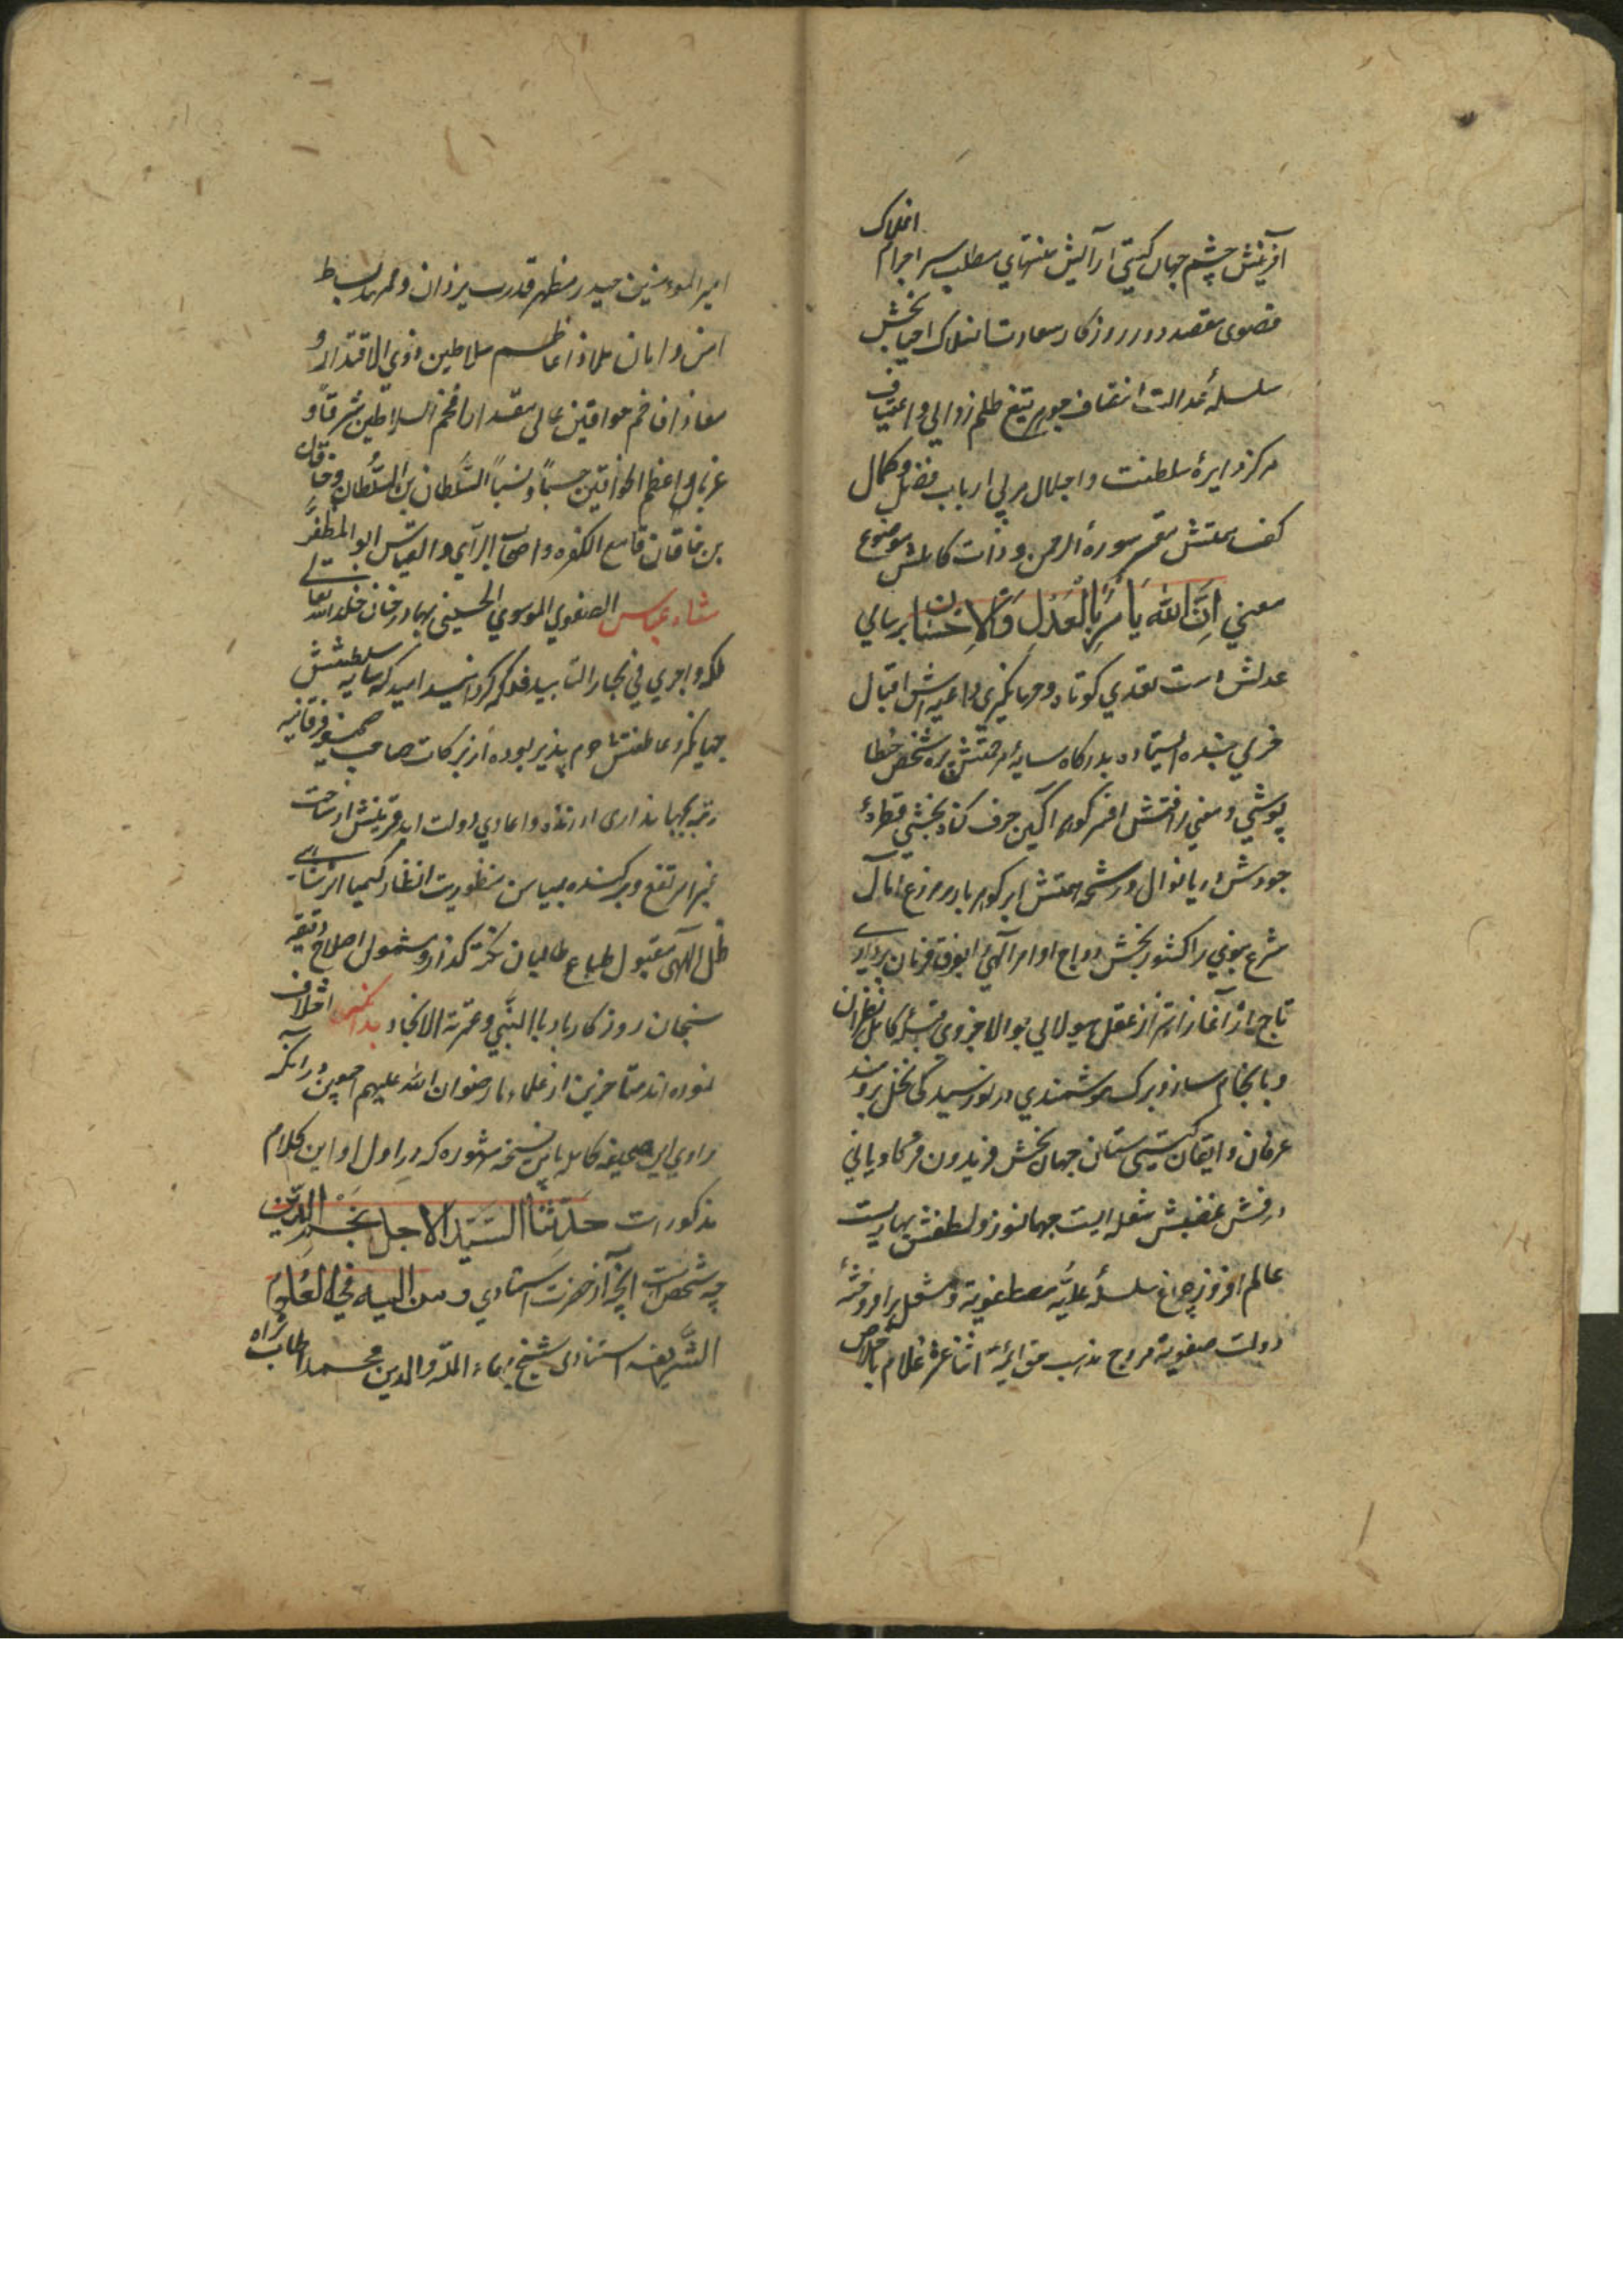 آفرینش چشم جهان گیتی آرایش منتهای مطلب سیر اجرام افلاک
قصوی مقصد دور روزگار سعادت انسلاک احیابخش
سلسلهٔ عدالت انتصاف جوهر تیغ ظلم زدایی و اعتساف
مرکز دایرهٔ سلطنت و اجلال مربی ارباب فضل و کمال
کف همتش مفسر سورهٔ الرحمن و ذات کاملش موضوع
معنی اِنَّ اللّه یَأمُرُ بِالْعَدْلِ وَالاِحْسٰان برسائی
عدلش دست تعدی کوتاه و جهانگیری داعیه‌اش اقبال
بنده ایستاده بدرگاه سایهٔ مرحمتش پرده شخص خطا
پوشی و معنی رأفتش افسر گوهر آگین حرف گناه بخشی قطرهٔ
جودش دریا نوال و رشحهٔ همتش ابر گوهر بار مزرع آمال
شرع نبوی را کشور بخش رواج اوامر الهی را بفرق فرمان پرداری
تاج از آغاز
و بانجام ساز و برگ هوشمندی در نورسیدگی نخل برومند
عرفان و ایقان گیتی ستان جهان بخش فریدون فر کاویانی
درفش غضبش شعله ایست جهانسوز و لطفش بهاریست
عالم افروز چراغ سلسلهٔ علیّه مصطفویة و مشعل برافروختهٔ
دولت صفویة مروج مذهب حق ایمهٔ اثنا عشر غلام باخلاص
امیر المومنین حیدر مظهر قدرت یزدان و ممهد بساط
امن و امان ملاذ اعاظم سلاطین ذوی الاقتدار و
معاذ افاخم خواقین عالی مقدار افخم السلاطین شرقاً و
غرباً و اعظم الخواقین حسباً و نسباً السُّلطان بن السُّلطان و خاقان
بن خاقان قامع الکفره و اصحاب الرّأی و القیاس ابو المظفّر
شاه عباس الصفوی الموسوی الحسینی بهادر خان خلد اللّه تعالی
ملکه و اجری فی بحار التأیید فلکه گردانید امید که سایه سلطنتش
جهانگیر و عاطفتش جرم پذیر بوده از برکات صاحب
رقبه جهانداری او زنده و اعادی دولت ابد قرینش از ساحت
بمیامن منظوریت انظار کیمیا اثر شاهی
ظل اللهی مقبول طباع طالبان نکته گذار و مشمول اصلاح دقیقه
سنجان روزگار باد بالنّبی و عترته الامجاد بدانکه اختلاف
نموده اند متاخرین از علماء ما رضوان اللّه علیهم اجمعین در آنکه
راوی این صحیفه کامله باین نسخه مشهوره که در اول او این کلام
مذکور است حَدَّثَنٰا السَّیِّد الاجلّ نَجْمُ الدّین
چه شخص است آنچه از حضرت استادی و من الیه فی العُلوم
الشّریفه استنادی شیخ بهاء الملّه و الدین محمد طاب ثراه